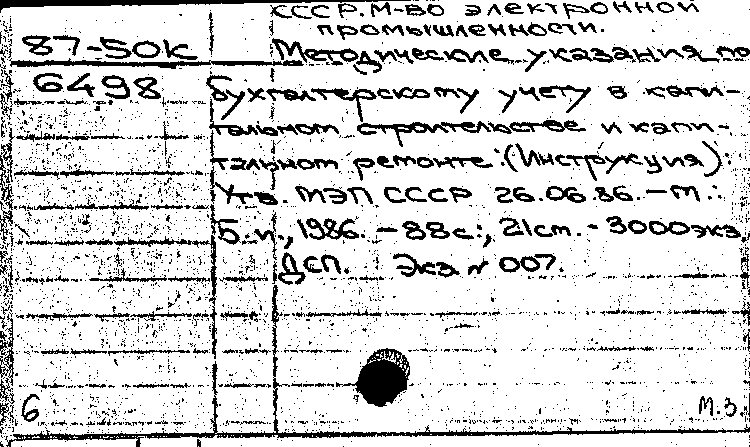 СССР. М-ВО ЭЛЕКТРОННОЙ
ПРОМЫШЛЕННОСТИ.
87-50К Методические указания по
6498 бухгалтерскому учету в капи-
тальном строительстве и капи-
тальном ремонте: (Инструкция):
Утв. МЭП СССР 26.06.86. - М.:
Б.и., 1986. - 88с.; 21см. - 3000экз
ДСП. Экз. № 007.
6 М.З.